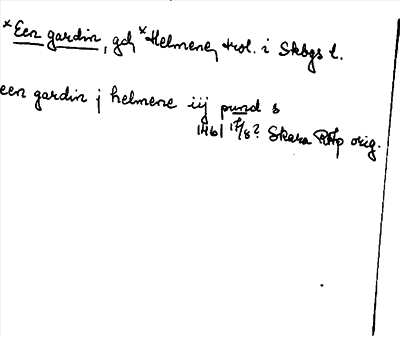 ×Een gardin, gd, ×Helmene, trol. i Skbgs l.
een gardin j helmene iij pund s
1461 17/8? Skara RAp orig.